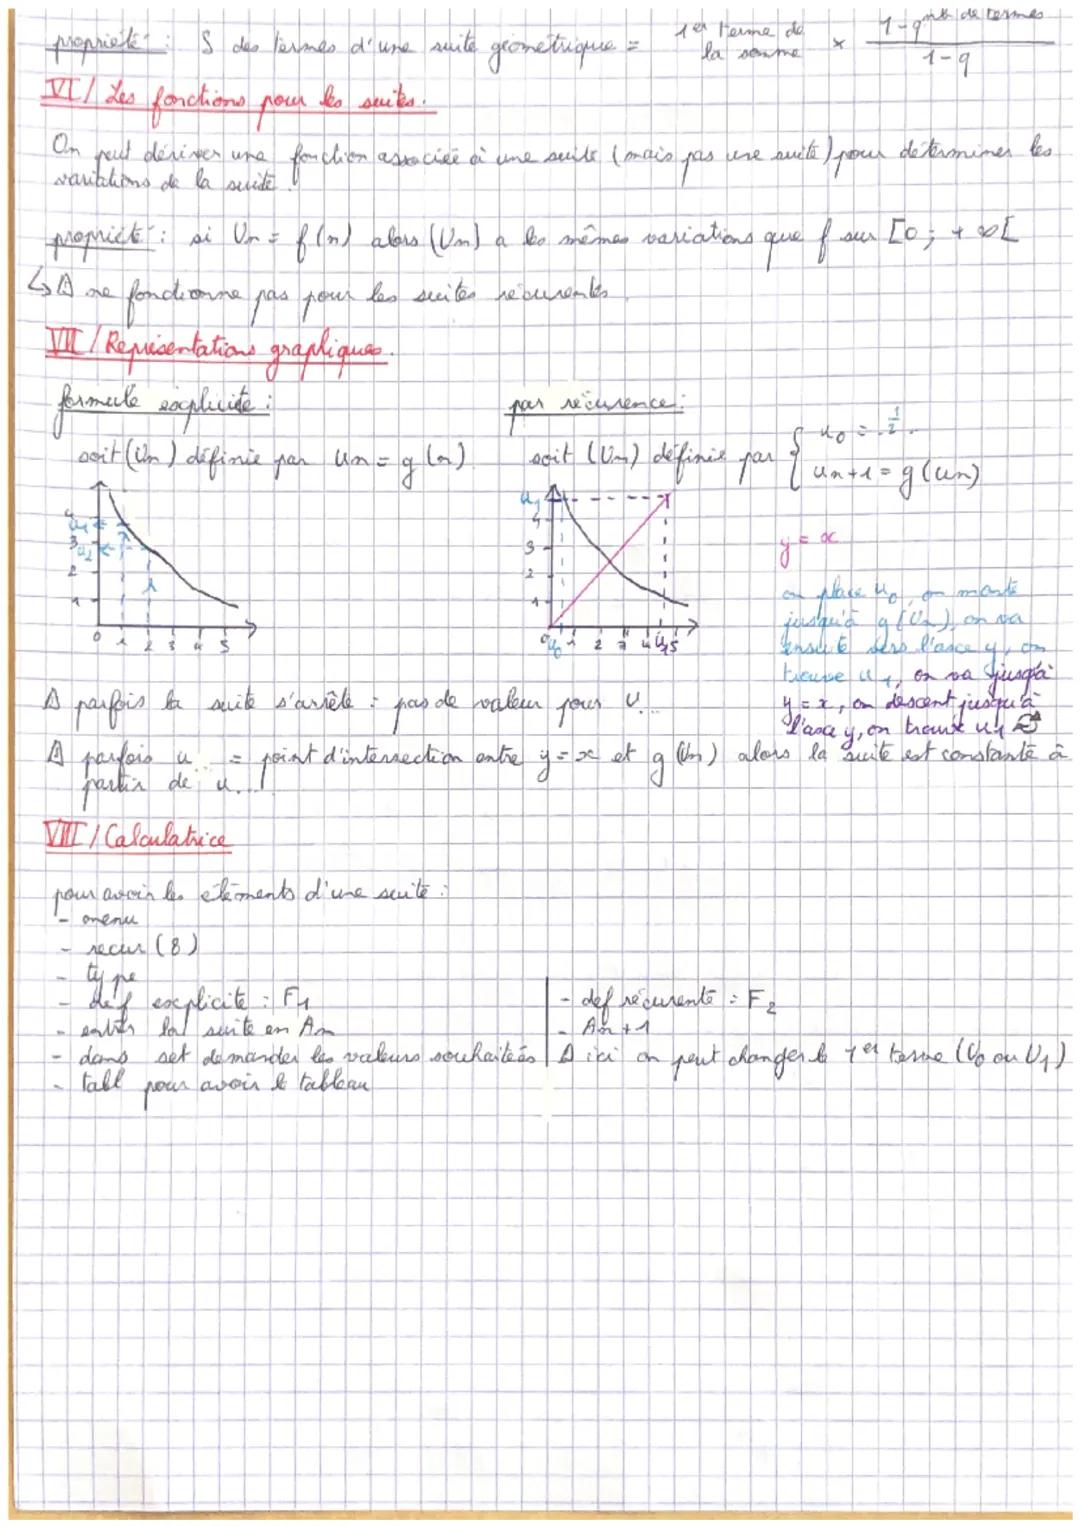 propriété : S des termes d'une suite géométrique = 1er terme de la somme × 1-q^nb de termes / 1-q
VI / Les fonctions pour les suites.
On peut dériver une fonction associée à une suite (mais pas une suite) pour déterminer les
variations de la suite.
propriété : si Un = f(n) alors (Un) a les mêmes variations que f sur [0 ; +∞[
↳ ⚠ ne fonctionne pas pour les suites récurentes.
VII / Représentations graphiques.
formule explicite :
soit (Un) définie par Un = g(n)
4
u1
3
u2
2
1
0 1 2 3 4 5
par récurence :
soit (Un) définie par { u0 = 1/2..
un+1 = g(un)
u1
4
3
2
1
0 u0 1 2 3 4 u1 5
y = x
on place u0, on monte
jusqu'à g(Un), on va
ensuite vers l'axe y, on
trouve u1, on va jusqu'à
y = x, on descent jusqu'à
l'axe y, on trouve u1
⚠ parfois la suite s'arrête : pas de valeur pour U...
⚠ parfois u... = point d'intersection entre y = x et g(Un) alors la suite est constante à
partir de u...
VIII / Calculatrice
pour avoir les éléments d'une suite :
- menu
- recur (8)
- type
- def explicite : F1
- entrer la suite en An
- dans set demander les valeurs souhaitées
- tabl pour avoir le tableau
- def récurente : F2
- An+1
⚠ ici on peut changer le 1er terme (U0 ou U1)